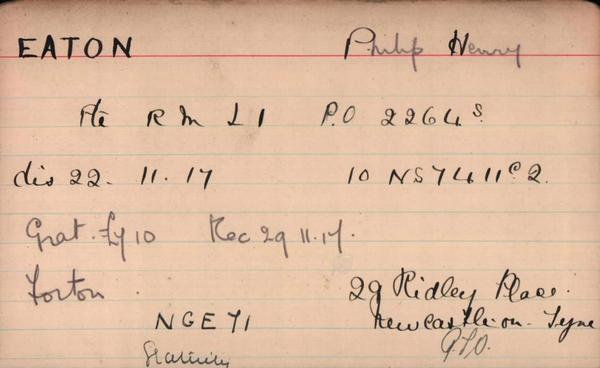 EATON Philip Henry
Pte R M L I P.O 2264 S.
dis 22. 11. 17 10 NS 7411 C 2
Grat. £ 10 Rec 29 11.17.
Forton 29 Ridley Place.
Newcastle-on-Tyne
NGE 71